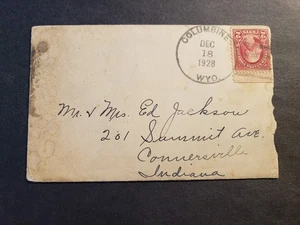 COLUMBINE
DEC
18
1928
WYO.
Mr. & Mrs. Ed Jackson
201 Summit Ave.
Connersville
Indiana